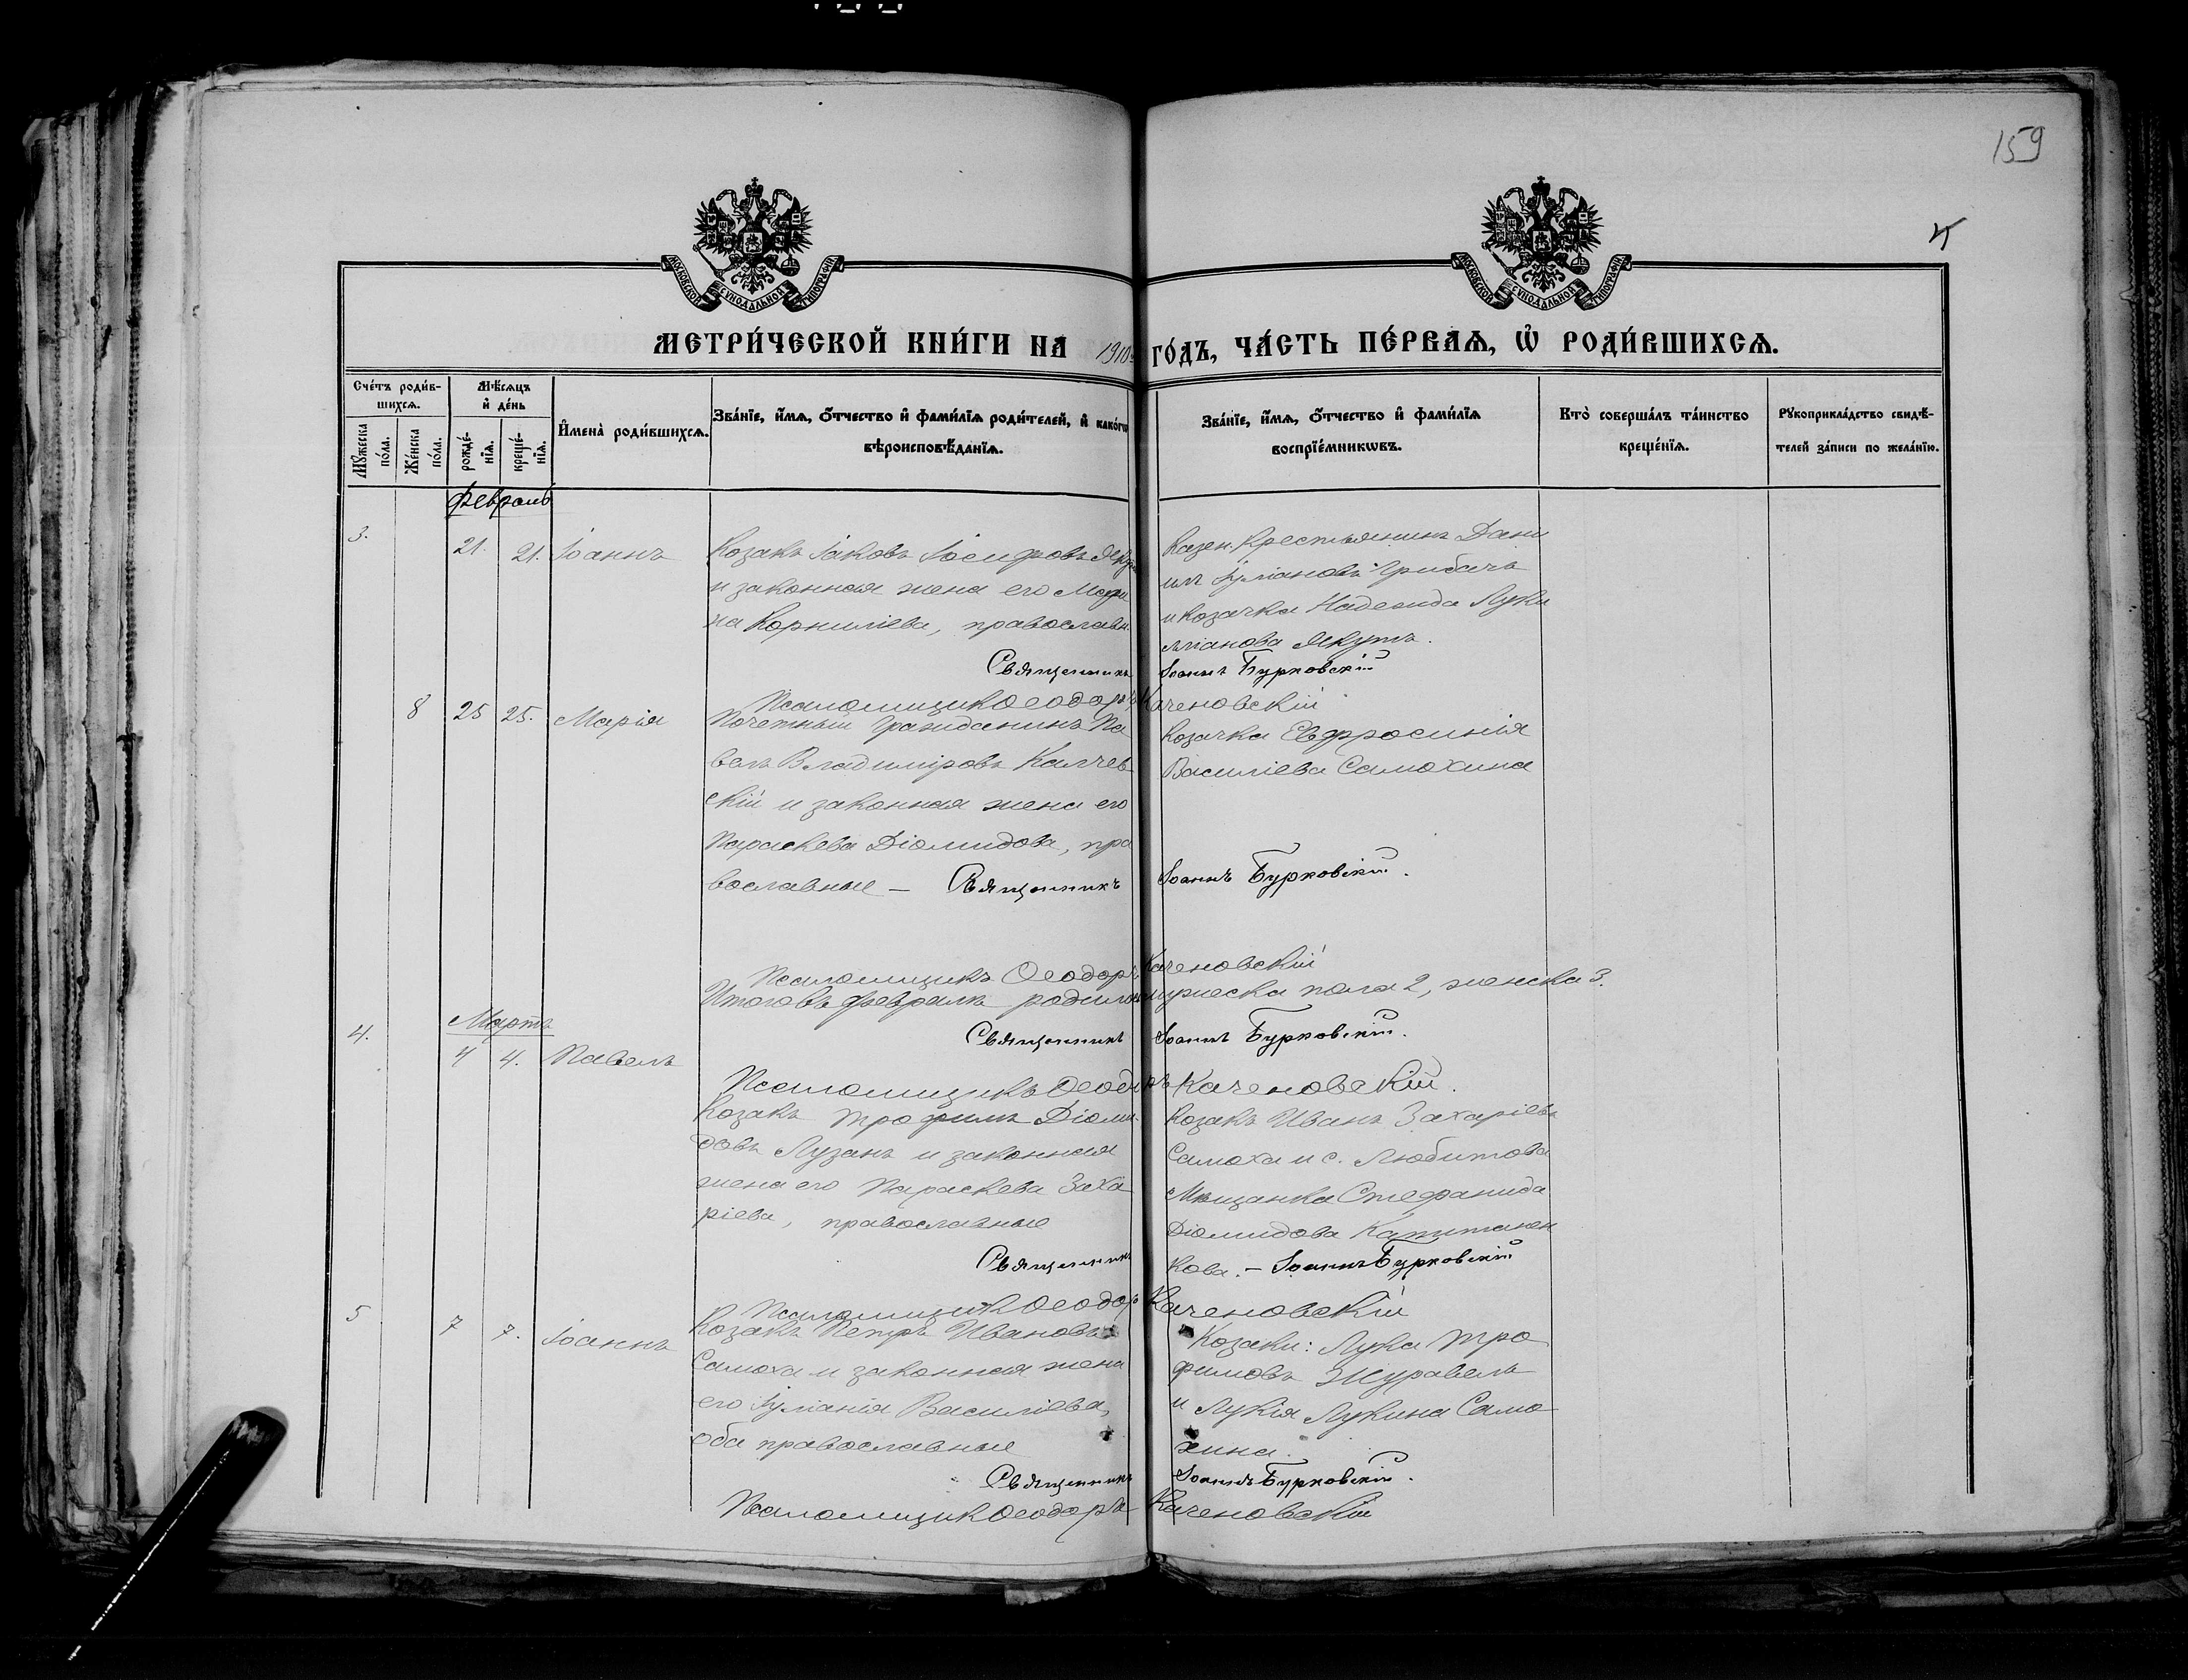 159
4
МОСКОВСКОЙ СѴНОДАЛЬНОЙ ТИПОГРАФІИ
МОСКОВСКОЙ СѴНОДАЛЬНОЙ ТИПОГРАФІИ
МЕТРИ́ЧЕСКОЙ КНИ́ГИ НА 1910 ГО́ДЪ, ЧА́СТЬ ПЕ́РВАѦ, Ѡ҆ РОДИ́ВШИХСѦ.
Сче́тъ роди́в-
шихсѧ.
Мꙋ́жеска по́ла.
Же́нска по́ла.
Мѣ́сѧцъ
и҆ де́нь
рожде́-нїѧ.
креще́-нїѧ.
И҆мена̀ роди́вшихсѧ.
Зва́нїе, и҆́мѧ, ѻ҆́тчество и҆ фами́лїѧ роди́телей, и҆ како́гѡ
вѣроисповѣ́данїѧ.
Зва́нїе, и҆́мѧ, ѻ҆́тчество и҆ фами́лїѧ
воспрїе́мникѡвъ.
Кто̀ соверша́лъ та́инство
креще́нїѧ.
Рꙋкоприкла́дство свидѣ́-
телей за́писи по жела́нїю.
Февраль
3. 21. 21. Іоаннъ
Козакъ Іаковъ Іосифовъ
и законная жена его Мари
на Корниліева, православн.
Казен. Крестьянинъ Дани
илъ Іуліановъ Грибачъ
и козачка Надежда Луки
лліанова Якутъ.
Священникъ Іоаннъ Бурковскій
Псаломщикъ Ѳеодоръ Каченовскій
8 25 25. Марія
Почетный Гражданинъ Па
велъ Владиміровъ Калчев
скій и законная жена его
Параскева Діомидова, пра
вославные — Священникъ Іоаннъ Бурковскій.
Козачка Евфросинія
Василіева Самохина
Псаломщикъ Ѳеодоръ Каченовскій
Итого въ февралѣ родилось мужеска пола 2, женска 3.
Священникъ Іоаннъ Бурковскій.
Псаломщикъ Ѳеодоръ Каченовскій.
Мартъ
4. 4 4. Павелъ
Козакъ Трофимъ Діоми
довъ Лузанъ и законная
жена его Параскева Заха
ріева, православные
Козакъ Иванъ Захаріевъ
Самоха и с. Любитова
Мѣщанка Стефанида
Діомидова Капитанен
кова. — Іоаннъ Бурковскій
Священникъ
Псаломщикъ Ѳеодоръ Каченовскій
5 7 7. Іоаннъ
Козакъ Петръ Ивановъ
Самоха и законная жена
его Іуліанія Василіева,
оба православные
Козаки: Лука Тро
фимовъ Журавель
и Лукія Лукина Само
хина.
Священникъ Іоаннъ Бурковскій.
Псаломщикъ Ѳеодоръ Каченовскій